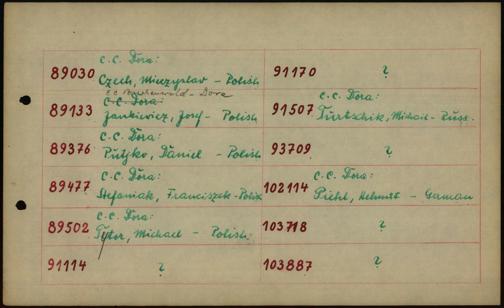 89030 C.C. Dora:
Czech, Mieczyslav - Polish
C.C. Buchenwald - Dora
89133 C.C. Dora:
Jankiewicz, Josef - Polish
89376 C.C. Dora:
Putzko, Daniel - Polish
89477 C.C. Dora:
Stefaniak, Franciszek - Polish
89502 C.C. Dora:
Tytor, Michael - Polish
91114 ?
91170 ?
91507 C.C. Dora:
Turtschik, Michail - Russ.
93709 ?
102114 C.C. Dora:
Piehl, Helmut - German
103718 ?
103887 ?